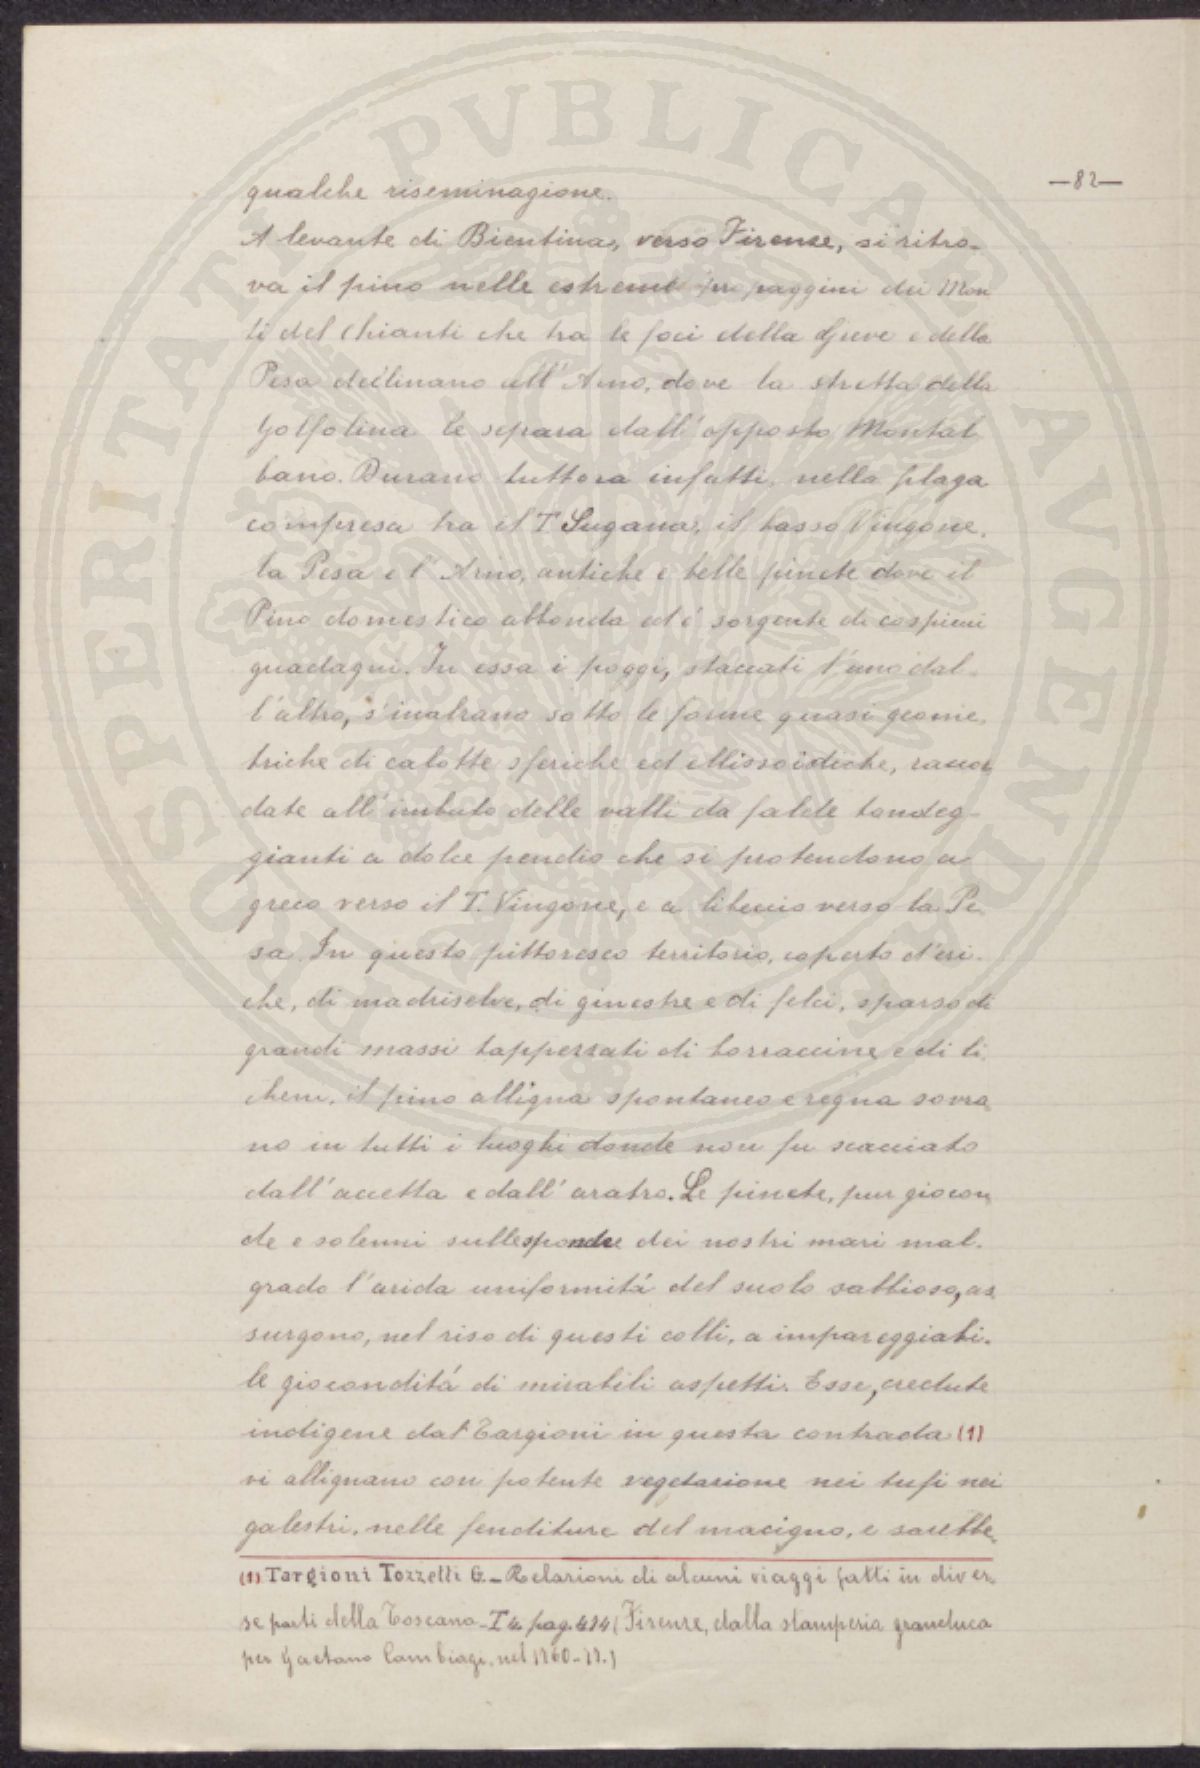 —82—
qualche riseminagione.
A levante di Bientina, verso Firenze, si ritro-
va il pino nelle estreme propaggini dei Mon
ti del Chianti che tra le foci della Greve e della
Pesa declinano all'Arno, dove la stretta della
Golfolina le separa dall'opposto Montal
bano. Durano tuttora infatti, nella plaga
compresa tra il T. Sugana, il basso Vingone,
la Pesa e l'Arno, antiche e belle pinete dove il
Pino domestico abbonda ed é sorgente di cospicui
guadagni. In essa i poggi, staccati l'uno dal-
l'altro, s'inalzano sotto le forme quasi geome-
triche di calotte sferiche ed ellissoidiche, raccor
date all'imbuto delle valli da falde tondeg-
gianti a dolce pendio che si protendono a
greco verso il T. Vingone, e a libeccio verso la Pe
sa. In questo pittoresco territorio, coperto d'eri-
che, di madriselve, di ginestre e di felci, sparso di
grandi massi tappezzati di borraccine e di li
cheni, il pino alligna spontaneo e regna sovra
no in tutti i luoghi donde non fu scacciato
dall'accetta e dall'aratro. Le pinete, pur giocon
de e solenni sulle sponde dei nostri mari mal-
grado l'arida uniformitá del suolo sabbioso, as
surgono, nel riso di questi colli, a impareggiabi-
le giocondità di mirabili aspetti. Esse, credute
indigene dal Targioni in questa contrada (1)
vi allignano con potente vegetazione nei tufi nei
galestri, nelle fenditure del macigno, e sarebbe
(1) Targioni Tozzetti G. – Relazioni di alcuni viaggi fatti in diver-
se parti della Toscana – T 4. pag. 424 (Firenze, dalla stamperia granduca
per Gaetano Cambiagi, nel 1760-79.)
PROSPERITATI PVBLICAE AVGENDAE